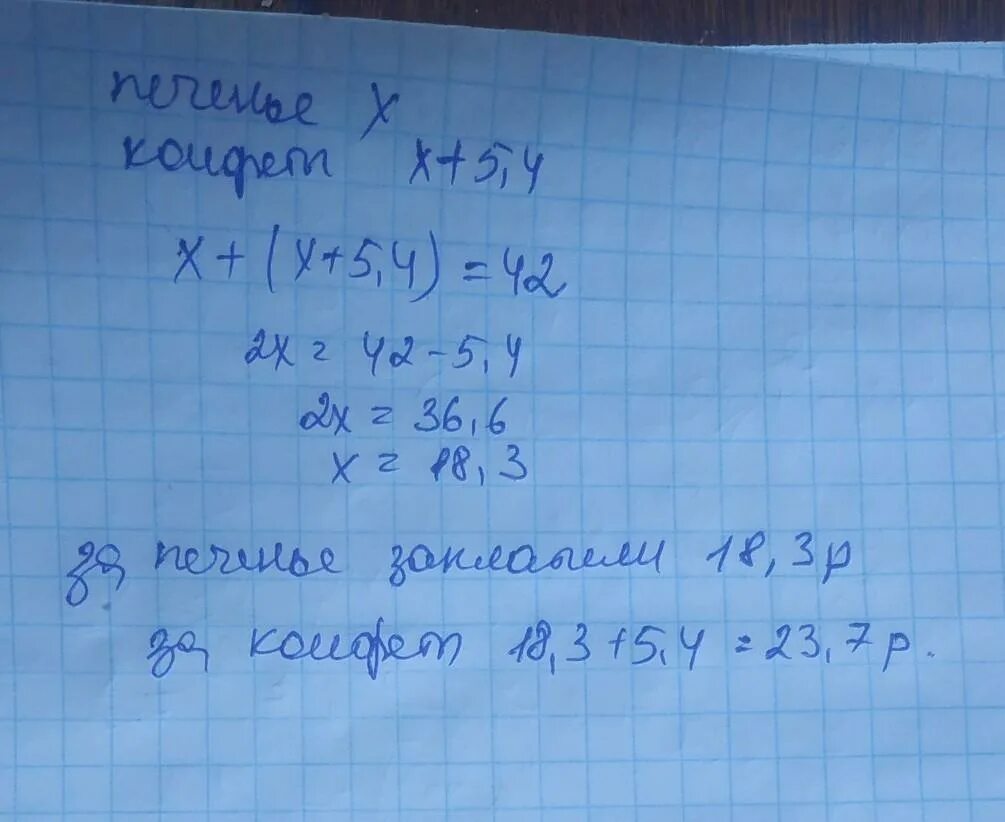 печенье x
конфет x+5,4
x+(x+5,4)=42
2x=42-5,4
2x=36,6
x=18,3
за печенье заплатили 18,3р
за конфет 18,3+5,4=23,7р.